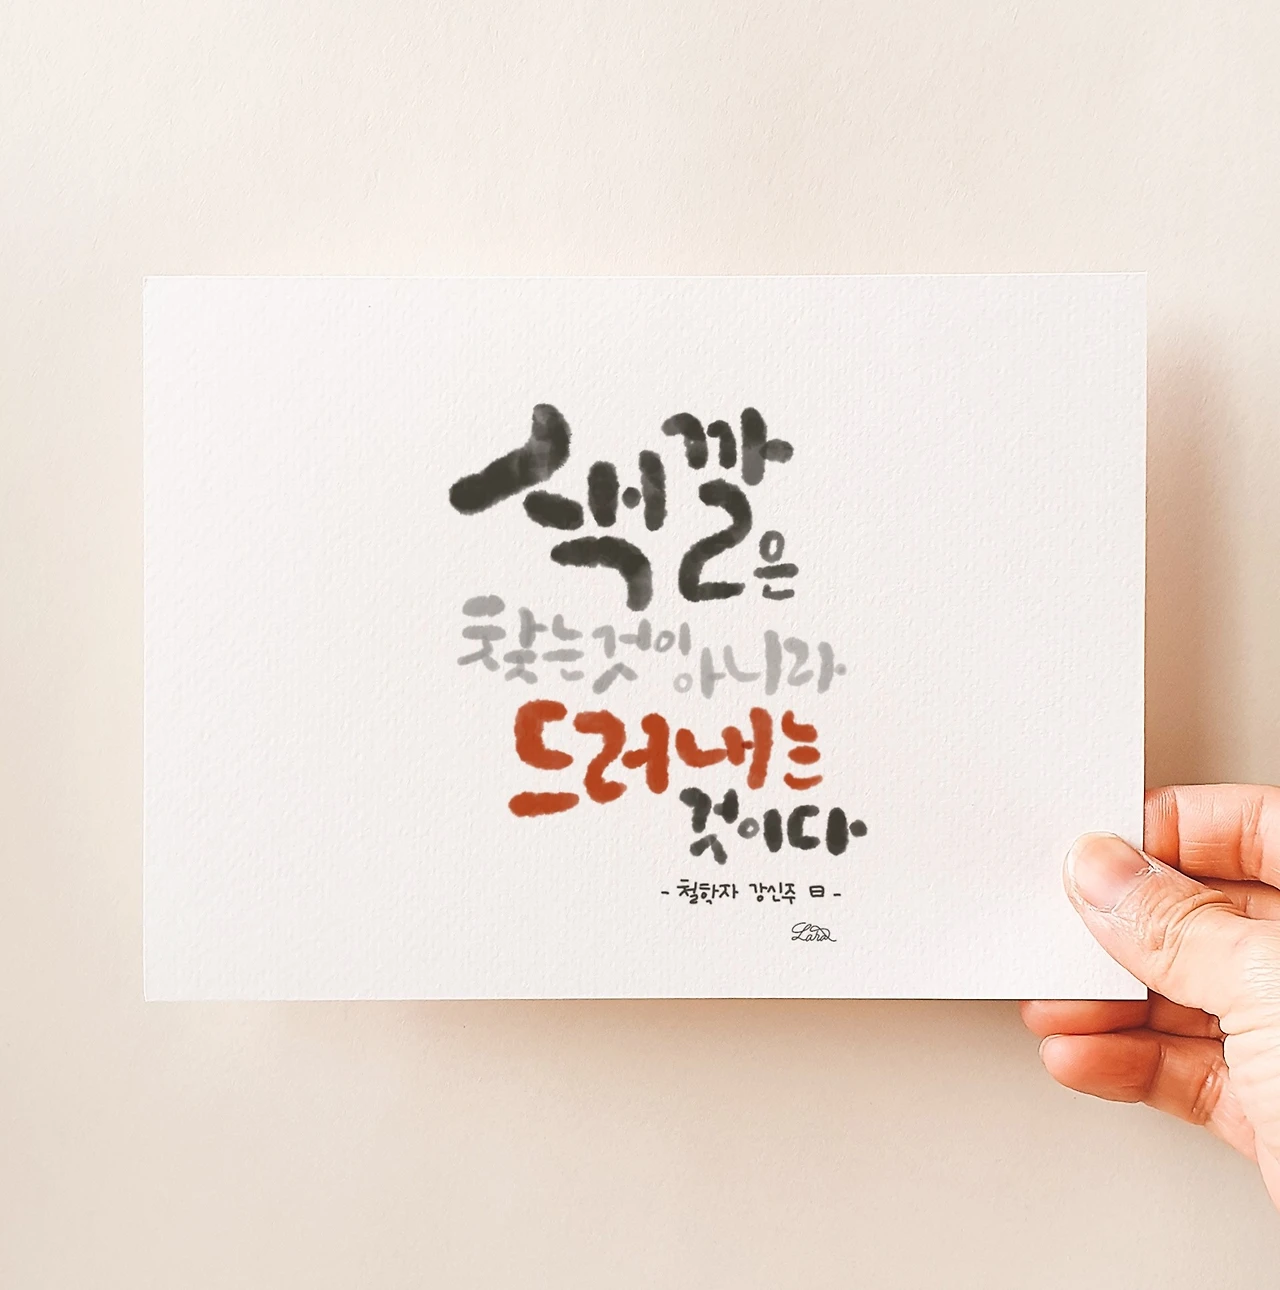 색깔은
찾는것이아니라
드러내는
것이다
- 철학자 강신주 曰 -
Lara